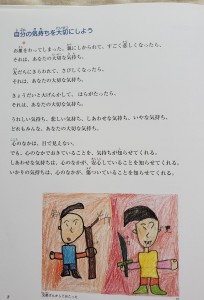 自分の気持ちを大切にしよう
お皿をわってしまった。親にしかられて、すごく悲しくなったら、
それは、あなたの大切な気持ち。
友だちにきらわれて、さびしくなったら、
それは、あなたの大切な気持ち。
きょうだいと大げんかして、はらがたったら、
それは、あなたの大切な気持ち。
うれしい気持ち、悲しい気持ち、しあわせな気持ち、いやな気持ち、
どれもみんな、あなたの大切な気持ち。
心のなかは、目で見えない。
でも、心のなかでおきていることを、気持ちが知らせてくれる。
しあわせな気持ちは、心のなかが、安心していることを知らせてくれる。
いかりの気持ちは、心のなかが、傷ついていることを知らせてくれる。